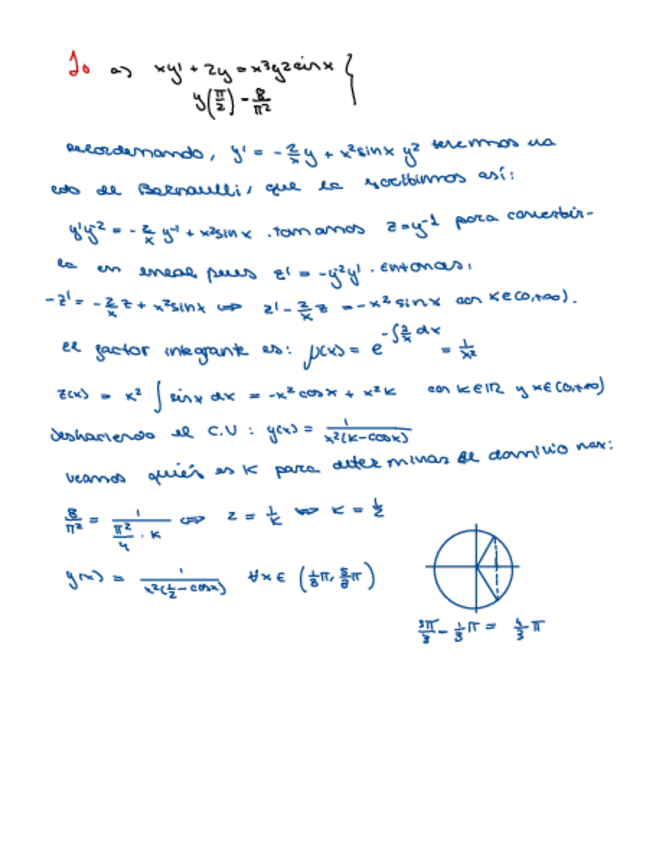 1. a) xy' + 2y = x³y² sin x }
y(π/2) = 8/π²
recordenando, y' = -2/x y + x² sin x y² tenemos una
edo de Bernoulli, que la escribimos así:
y'y⁻² = -2/x y⁻¹ + x² sin x . tomamos z = y⁻¹ para convertir-
la en lineal pues z' = -y⁻²y' . Entonces,
-z' = -2/x z + x² sin x ⇔ z' - 2/x z = -x² sin x con x ∈ (0,+∞).
el factor integrante es: μ(x) = e^(-∫ 2/x dx) = 1/x²
z(x) = x² ∫ sin x dx = -x² cos x + x² K con K ∈ ℝ y x ∈ (0,+∞)
deshaciendo el C.V : y(x) = 1/(x²(K - cos x))
veamos quién es K para determinar el dominio max:
8/π² = 1/(π²/4 · K) ⇔ 2 = 1/K ⇔ K = 1/2
y(x) = 1/(x²(1/2 - cos x)) ∀x ∈ (1/3 π, 5/3 π)